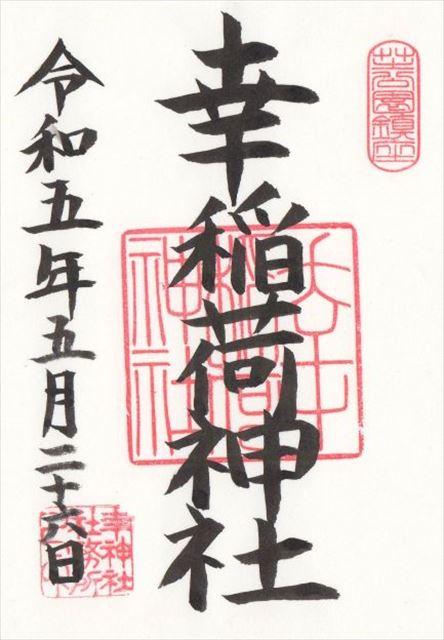 芝公園鎮座
幸稲荷神社
令和五年五月二十六日
幸神社
社務所